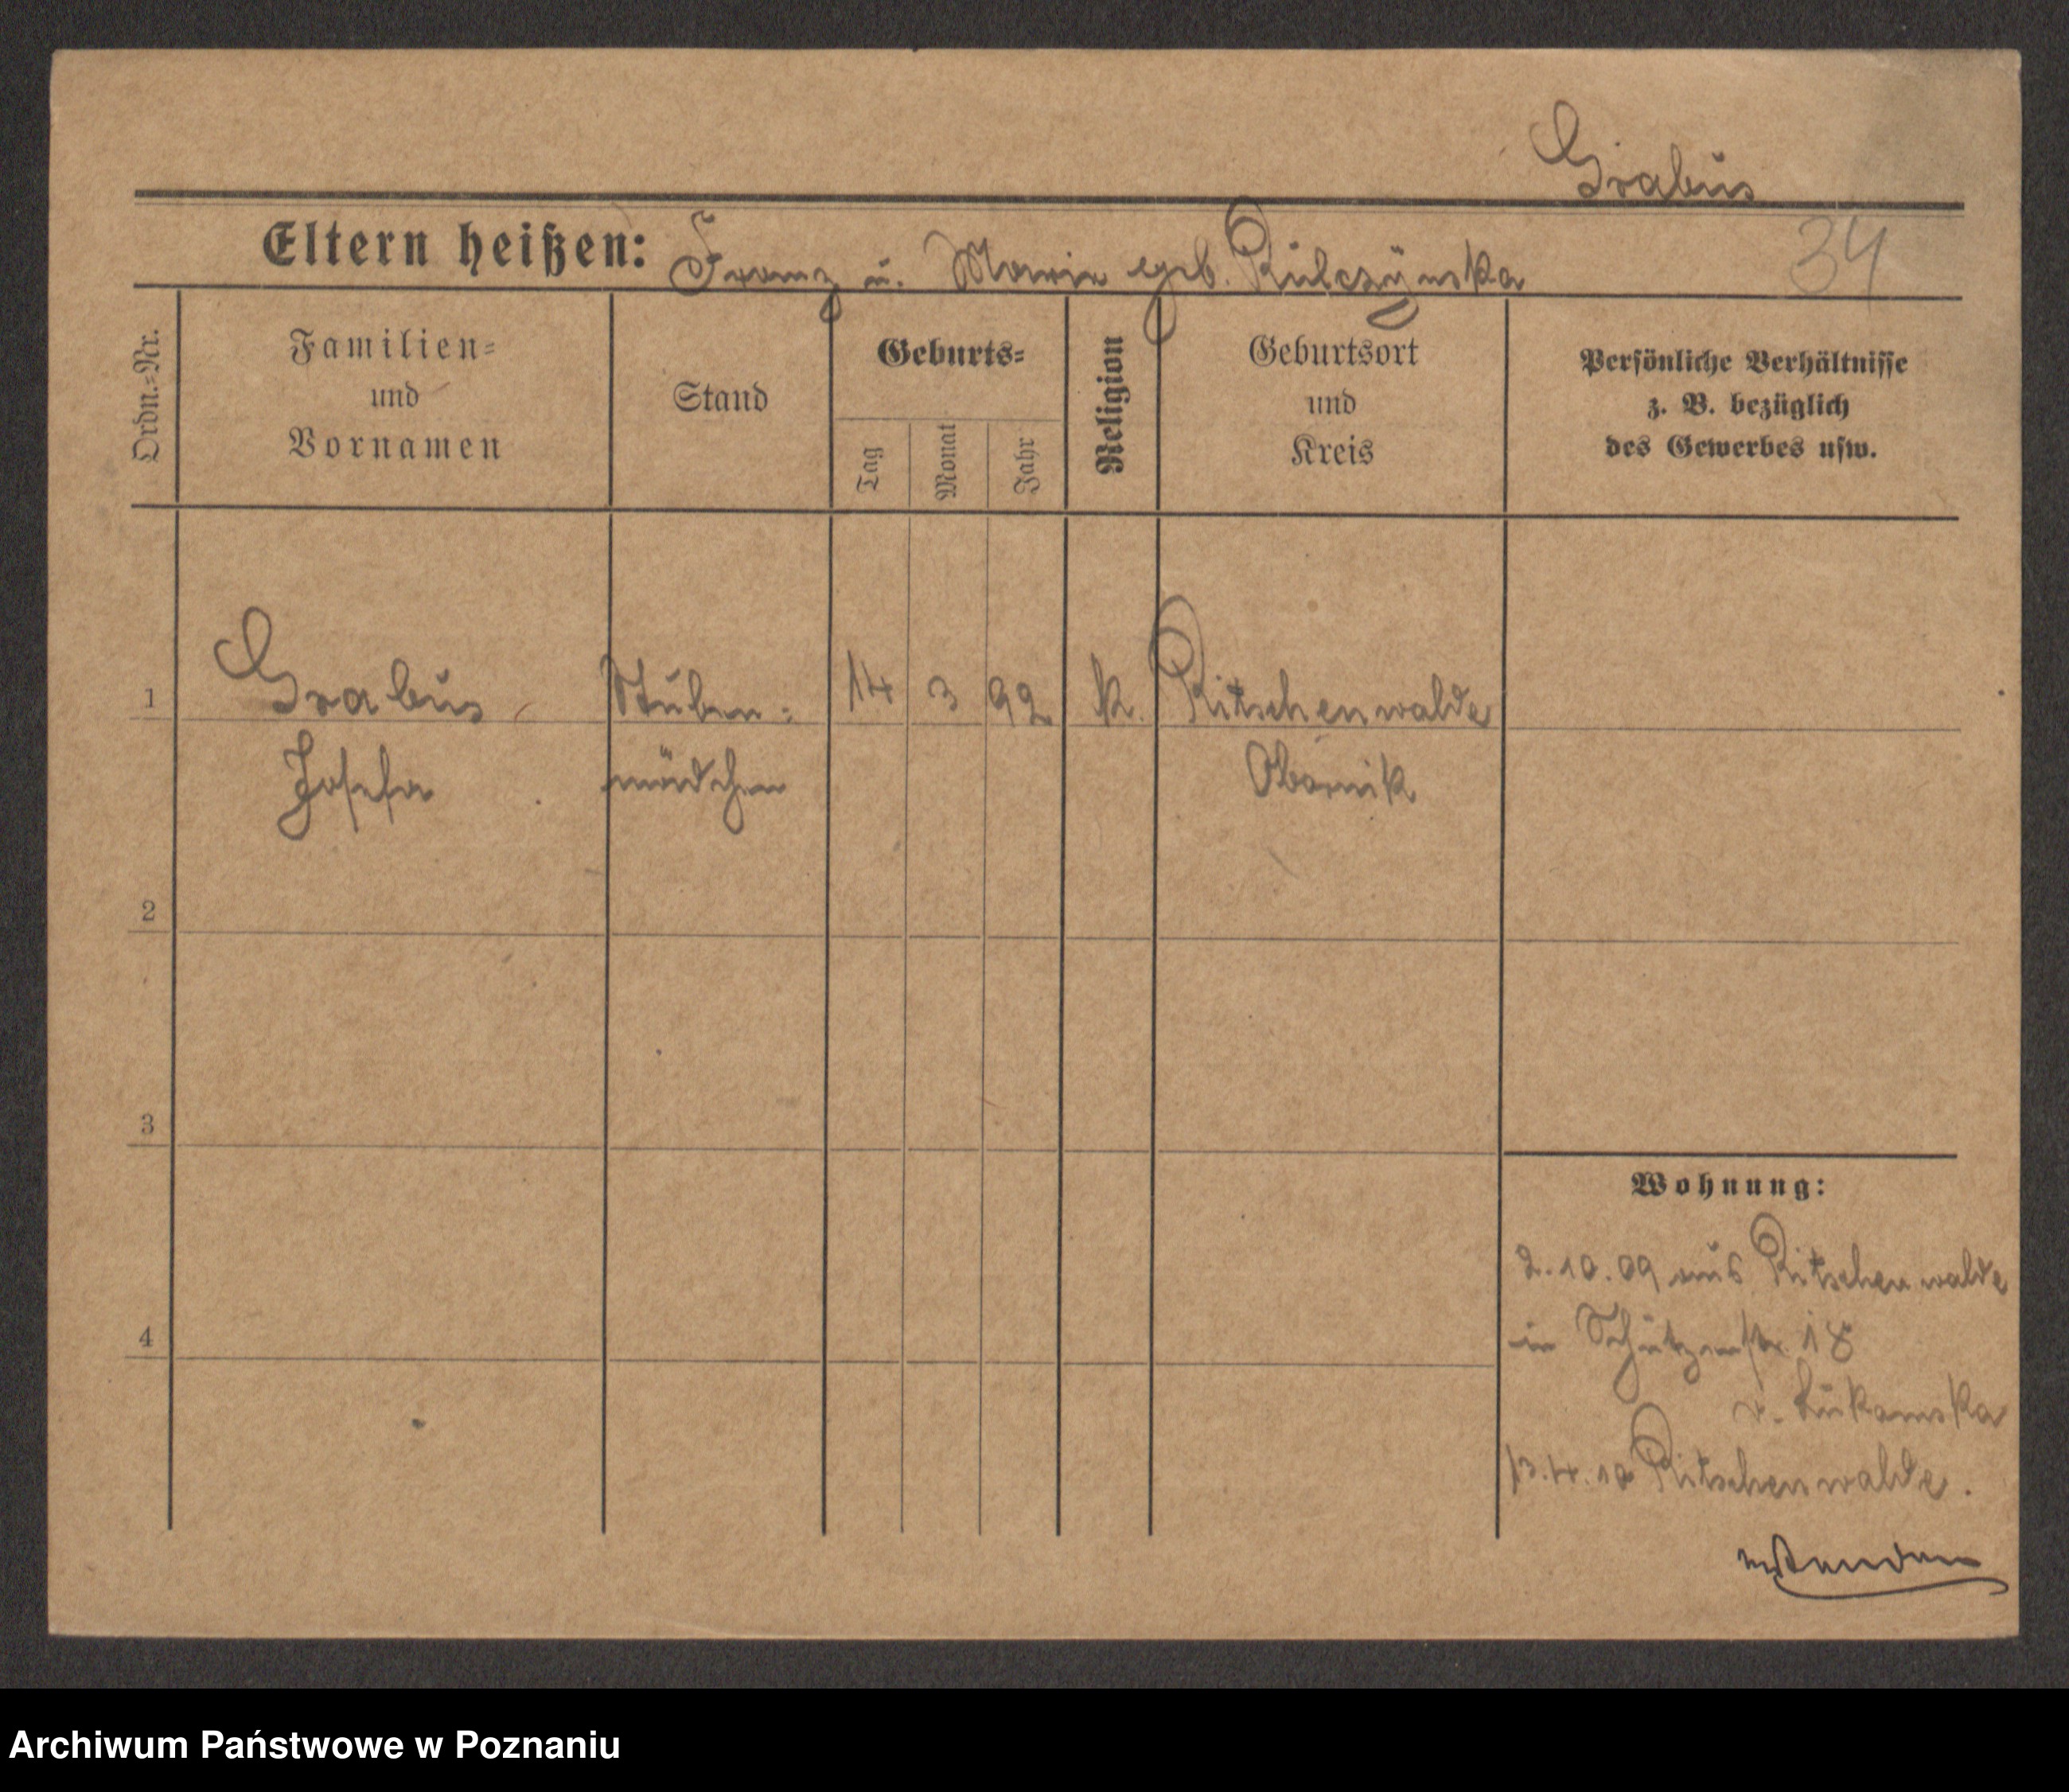 Grabus
Eltern heißen: Franz u. Marie geb. Rulczynska
34
Ordn.=Nr.
Familien=
und
Vornamen
Stand
Geburts=
Tag
Monat
Jahr
Religion
Geburtsort
und
Kreis
Persönliche Verhältnisse
z. B. bezüglich
des Gewerbes usw.
1 Grabus Stuben= 14 3 92 k. Ritschenwalde
Josefa mädchen Obornik
2
3
4
Wohnung:
2.10.09 aus Ritschenwalde
in Schützenstr. 18
v. Lukomska
13.4.10 Ritschenwalde.
Archiwum Państwowe w Poznaniu